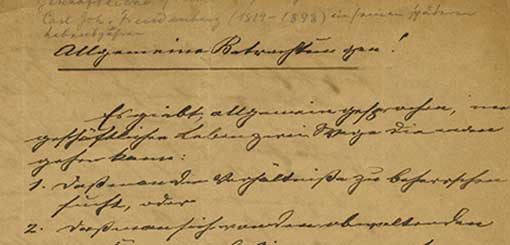 Carl Joh. Freudenberg (1819-1898) in seinen späteren
Lebensjahren
Allgemeine Betrachtungen!
Es giebt, allgemein gesprochen, im
geschäftlichen Leben zwei Wege die man
gehen kann:
1. Daß man die Verhältniße zu beherrschen
sucht, oder
2. Daß man sich von den obwaltenden